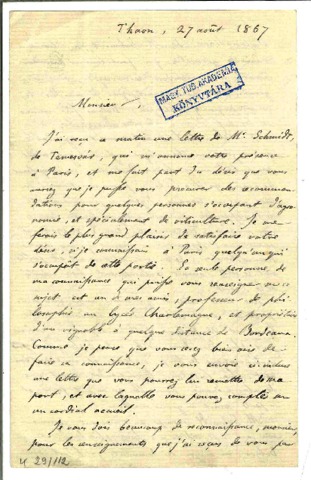 Thaon, 27 août 1867
MAGY. TUD. AKADEMIA
KÖNYVTÁRA
Monsieur,
J'ai reçu ce matin une lettre de Mr Schmidt,
de Temesvár, qui m'annonce votre présence
à Paris, et me fait part du désir que vous
auriez que je pusse vous procurer des recomman-
dations pour quelques personnes s'occupant d'agro-
nomie, et spécialement de viticulture. Je me
ferais le plus grand plaisir de satisfaire votre
désir, si je connaissais à Paris quelqu'un qui
s'occupât de cette partie. La seule personne, de
ma connaissance qui puisse vous renseigner sur ce
sujet est un de mes amis, professeur de phi-
losophie au lycée Charlemagne, et propriétaire
d'un vignoble à quelque distance de Bordeaux.
Comme je pense que vous serez bien aise de
faire sa connaissance, je vous envoie ci-incluse
une lettre que vous pourrez lui remettre de ma
part, et avec laquelle vous pouvez compter sur
un cordial accueil.
Je vous dois beaucoup de reconnaissance, monsieur,
pour les renseignements que j'ai reçus de vous par
4 29/112